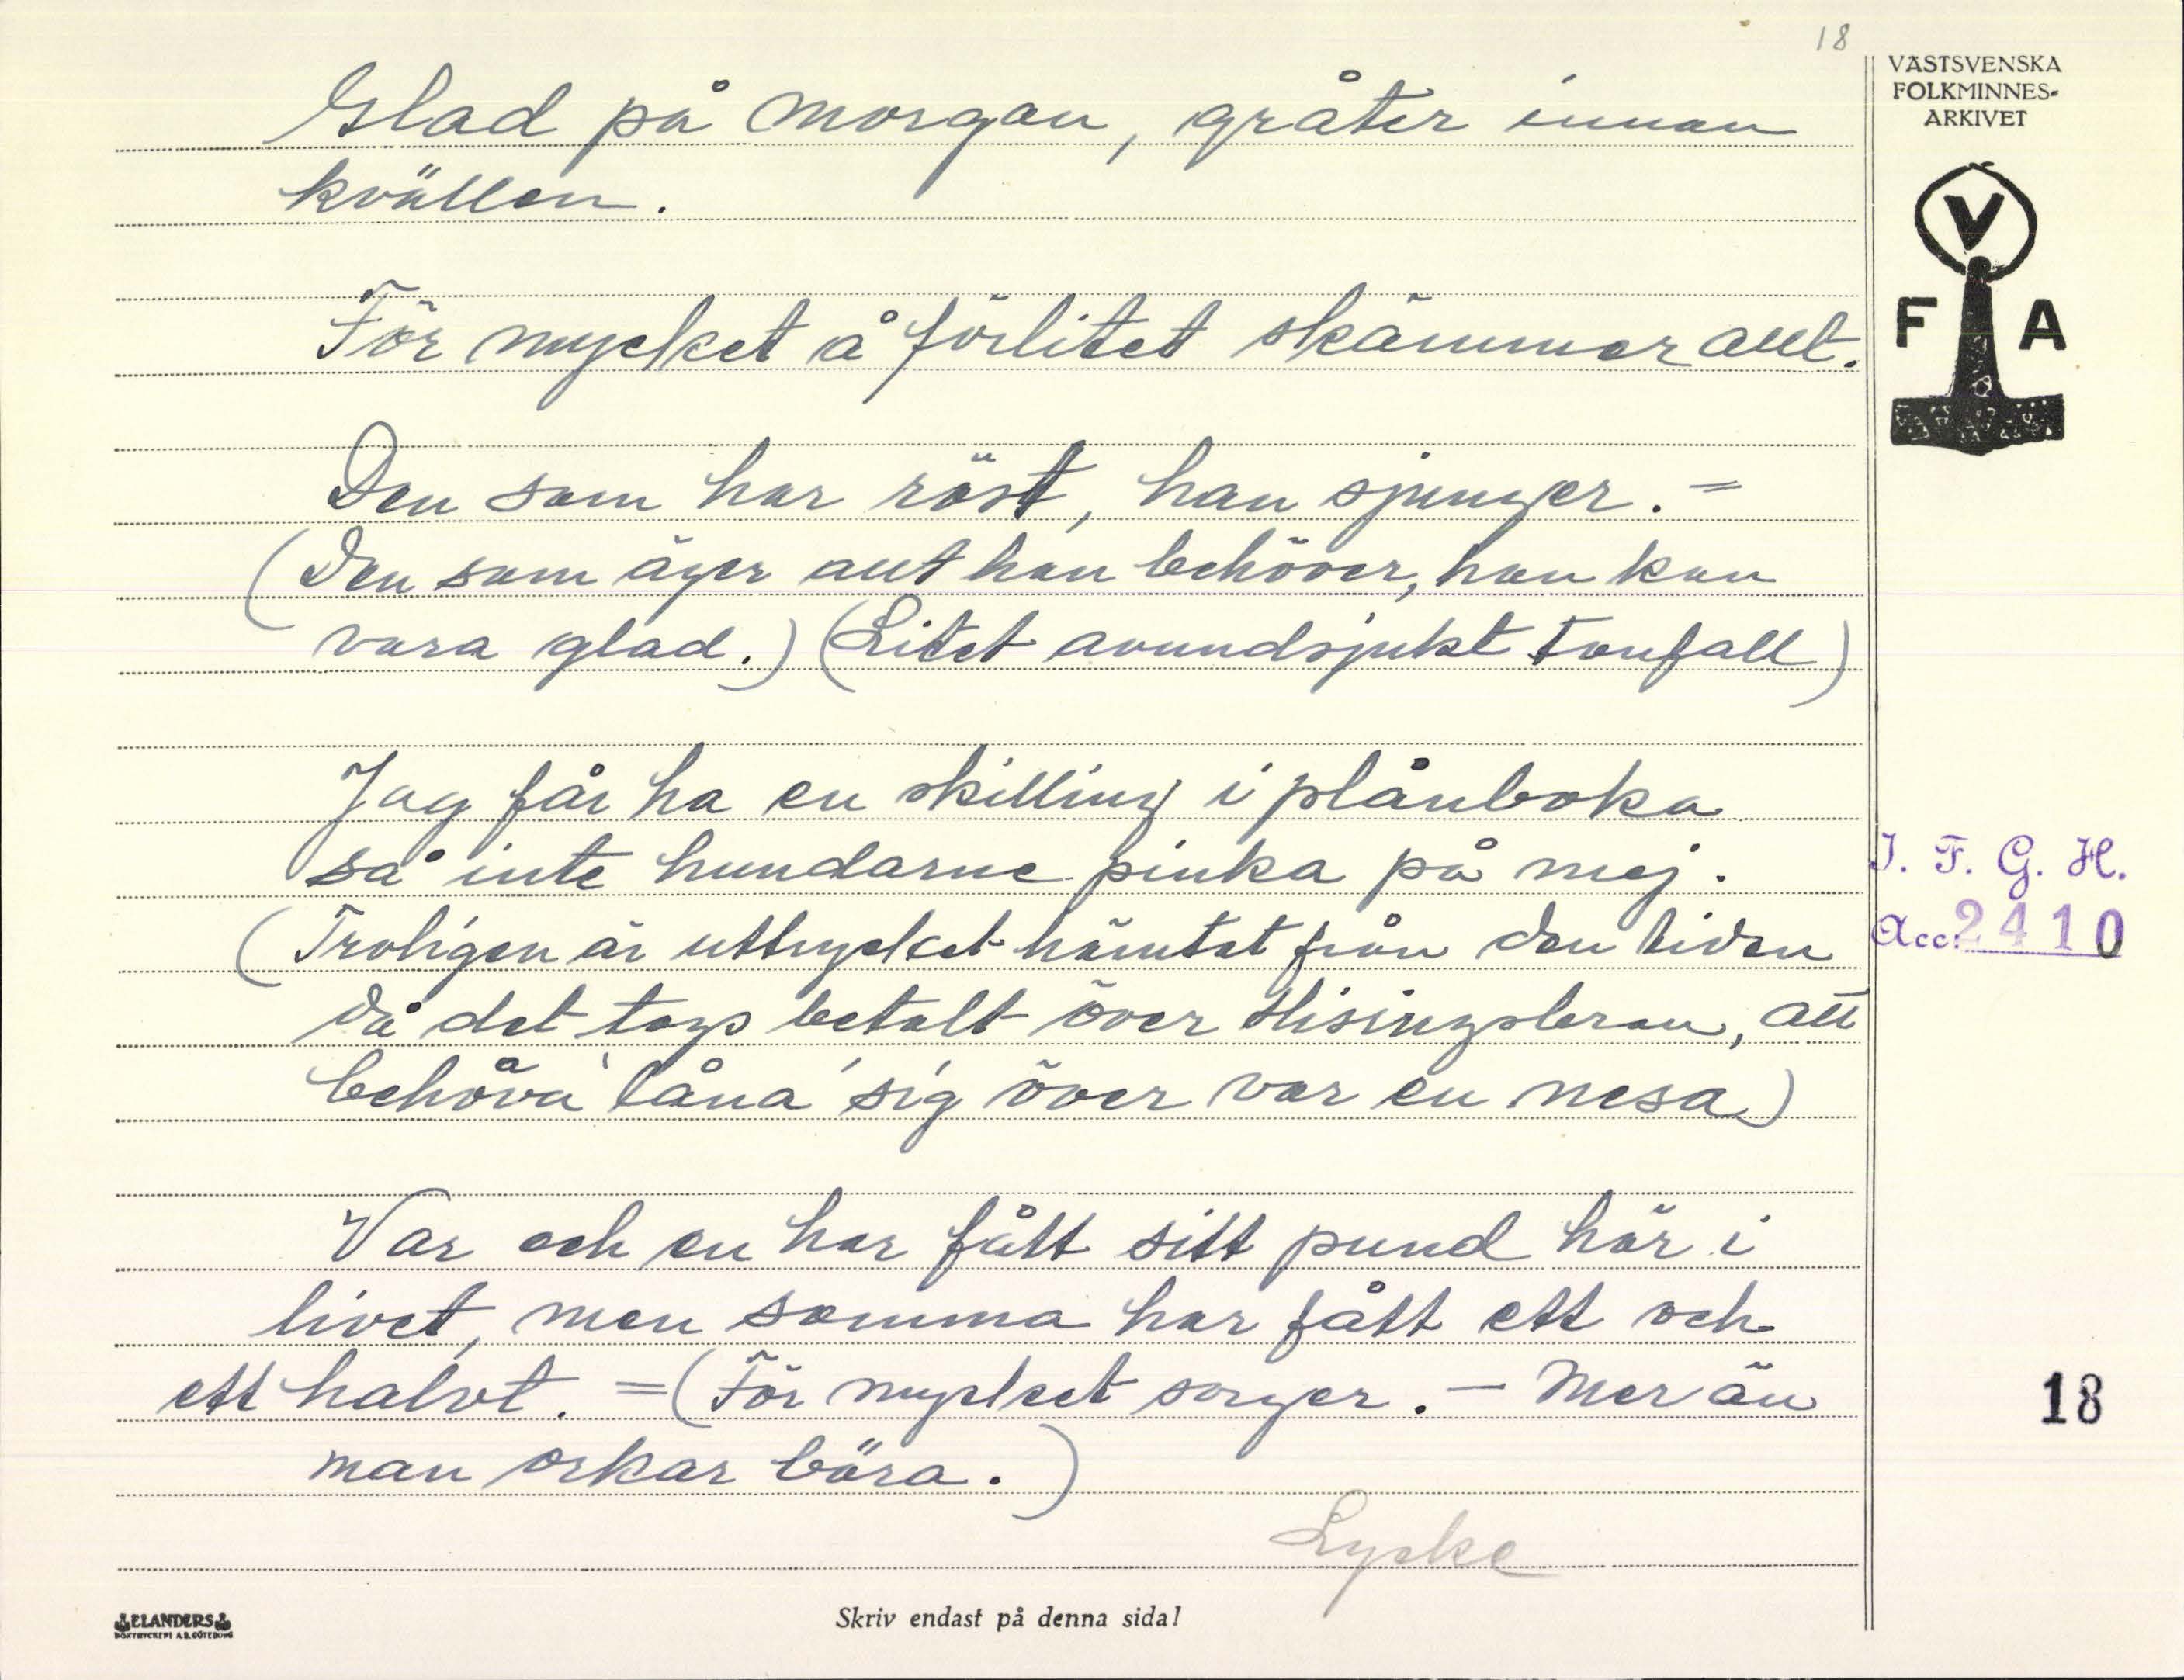 18
VÄSTSVENSKA
FOLKMINNES-
ARKIVET
V
F A
Glad på morgan, gråter innan
kvällen.
För mycket å förlitet skämmer allt.
Den som har röst, han sjunger. =
(Den som äger allt han behöver, han kan
vara glad.) (Litet avundsjukt tonfall)
Jag får ha en skilling i plånboka
så inte hundarne pinka på mej.
(Troligen är uttrycket hämtat från den tiden
då det togs betalt över Hisingsbron, att
behöva låna sig över var en nesa)
Var och en har fått sitt pund här i
livet, men somma har fått ett och
ett halvt. = (För mycket sorger. — Mer än
man orkar bära.)
Lycke
I. F. G. H.
Acc. 2410
18
ELANDERS
BOKTRYCKERI A.B. GÖTEBORG
Skriv endast på denna sida!